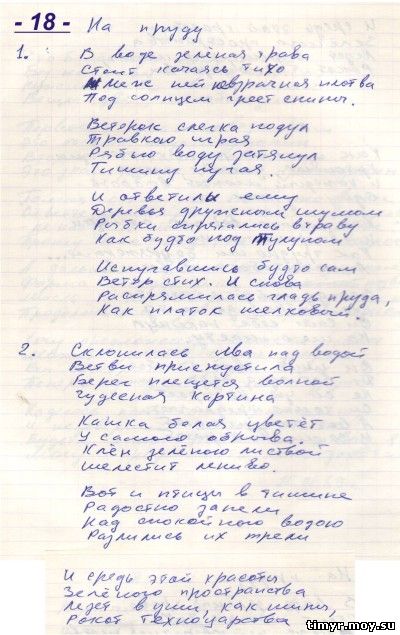 - 18 - На пруду
1. В воде зелёная трава
Стоит качаясь тихо
Меж ней невзрачная плотва
Под солнцем греет спины.
Ветерок слегка подул
Травкою играя
Рябью воду затянул
Тишину пугая.
И ответили ему
Деревья дружеским шумом
Рыбки спрятались в траву
Как будто под тулупом
Испугавшись будто сам
Ветер стих. И снова
Распрямилась гладь пруда,
Как платок шелковый.
2. Склонилась Ива над водой
Ветви приспустила
Берег плещется волной
Чудесная картина
Кашка белая цветёт
У самого обрыва.
Клён зелёною листвой
Шелестит лениво.
Вот и птицы в тишине
Радостно запели
Над спокойною водою
Разлились их трели
И средь этой красоты
Зелёного пространства
Лезет в уши, как шипы,
Рокот техноцарства
timyr.moy.su